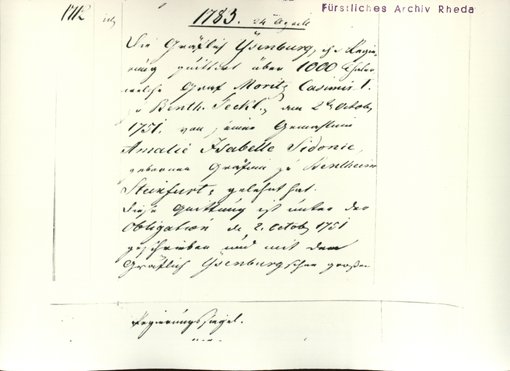 1712
1783. 24 April
Fürstliches Archiv Rheda
Die Gräflich Ysenburg, sche Regie-
rung quittirt über 1000 Thaler
welche Graf Moritz Casimir I.
z. Benth. Teckl., am 2. Octob.
1751. von seiner Gemahlin
Amalie Isabelle Sidonie,
geborener Gräfin zu Bentheim
Steinfurt, gelehnt hat.
Diese Quittung ist unter der
Obligation de 2. Octob. 1751
geschrieben und mit dem
Gräflich Ysenburgschen großen
Regierungssiegel.